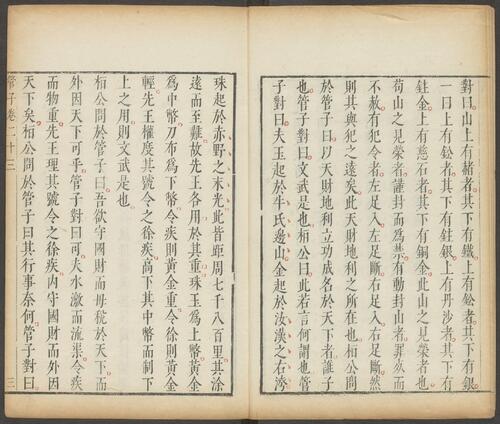 對曰山上有赭者其下有鐵上有鉛者其下有銀
一曰上有鉛者其下有鉒銀上有丹沙者其下有
鉒金上有慈石者其下有銅金此山之見榮者也
苟山之見榮者謹封而為禁有動封山者罪死而
不赦有犯令者左足入左足斷右足入右足斷然
則其與犯之遠矣此天財地利之所在也桓公問
於管子曰以天財地利立功成名於天下者誰子
也管子對曰文武是也桓公曰此若言何謂也管
子對曰夫玉起於牛氏邊山金起於汝漢之右洿
珠起於赤野之末光此皆距周七千八百里其涂
遠而至難故先王各用於其重珠玉為上幣黃金
為中幣刀布為下幣令疾則黃金重令徐則黃金
輕先王權度其號令之徐疾高下其中幣而制下
上之用則文武是也
桓公問於管子曰吾欲守國財而毋稅於天下而
外因天下可乎管子對曰可夫水激而流渠令疾
而物重先王理其號令之徐疾內守國財而外因
天下矣桓公問於管子曰其行事奈何管子對曰
管子卷二十三
三